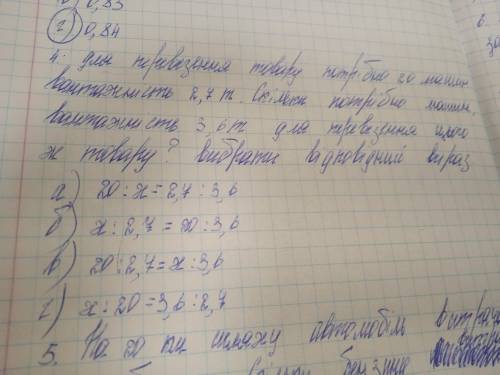 0,83
г) 0,84
4. Для перевезення товару потрібно 20 машин
вантажність 2,7 т. Скільки потрібно машин,
вантажність 3,6 т для перевезення цього
ж товару? Вибрати відповідний вираз
а) 20 : х = 2,7 : 3,6
б) х : 2,7 = 20 : 3,6
в) 20 : 2,7 = х : 3,6
г) х : 20 = 3,6 : 2,7
5. На 20 км шляху автомобіль
бензину